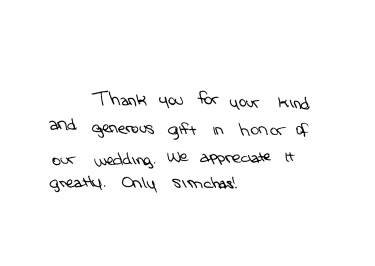 Thank you for your kind
and generous gift in honor of
our wedding. We appreciate it
greatly. Only simchas!